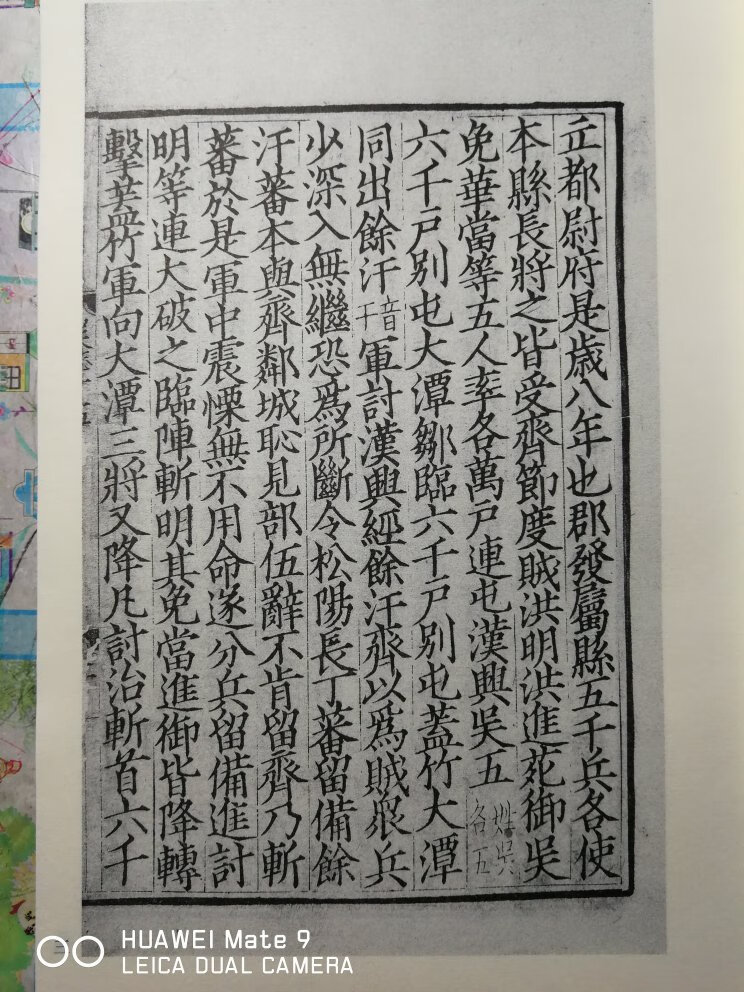 立都尉府是歲八年也郡發屬縣五千兵各使
本縣長將之皆受齊節度賊洪明洪進苑御吳
免華當等五人率各萬戸連屯漢興吳五姓吳名五
六千戸別屯大潭鄒臨六千戸別屯蓋竹大潭
同出餘汗音干軍討漢興經餘汗齊以爲賊衆兵
少深入無繼恐爲所斷令松陽長丁蕃留備餘
汗蕃本與齊鄰城恥見部伍辭不肯留齊乃斬
蕃於是軍中震慄無不用命遂分兵留備進討
明等連大破之臨陣斬明其免當進御皆降轉
擊蓋竹軍向大潭三將又降凡討治斬首六千
HUAWEI Mate 9
LEICA DUAL CAMERA